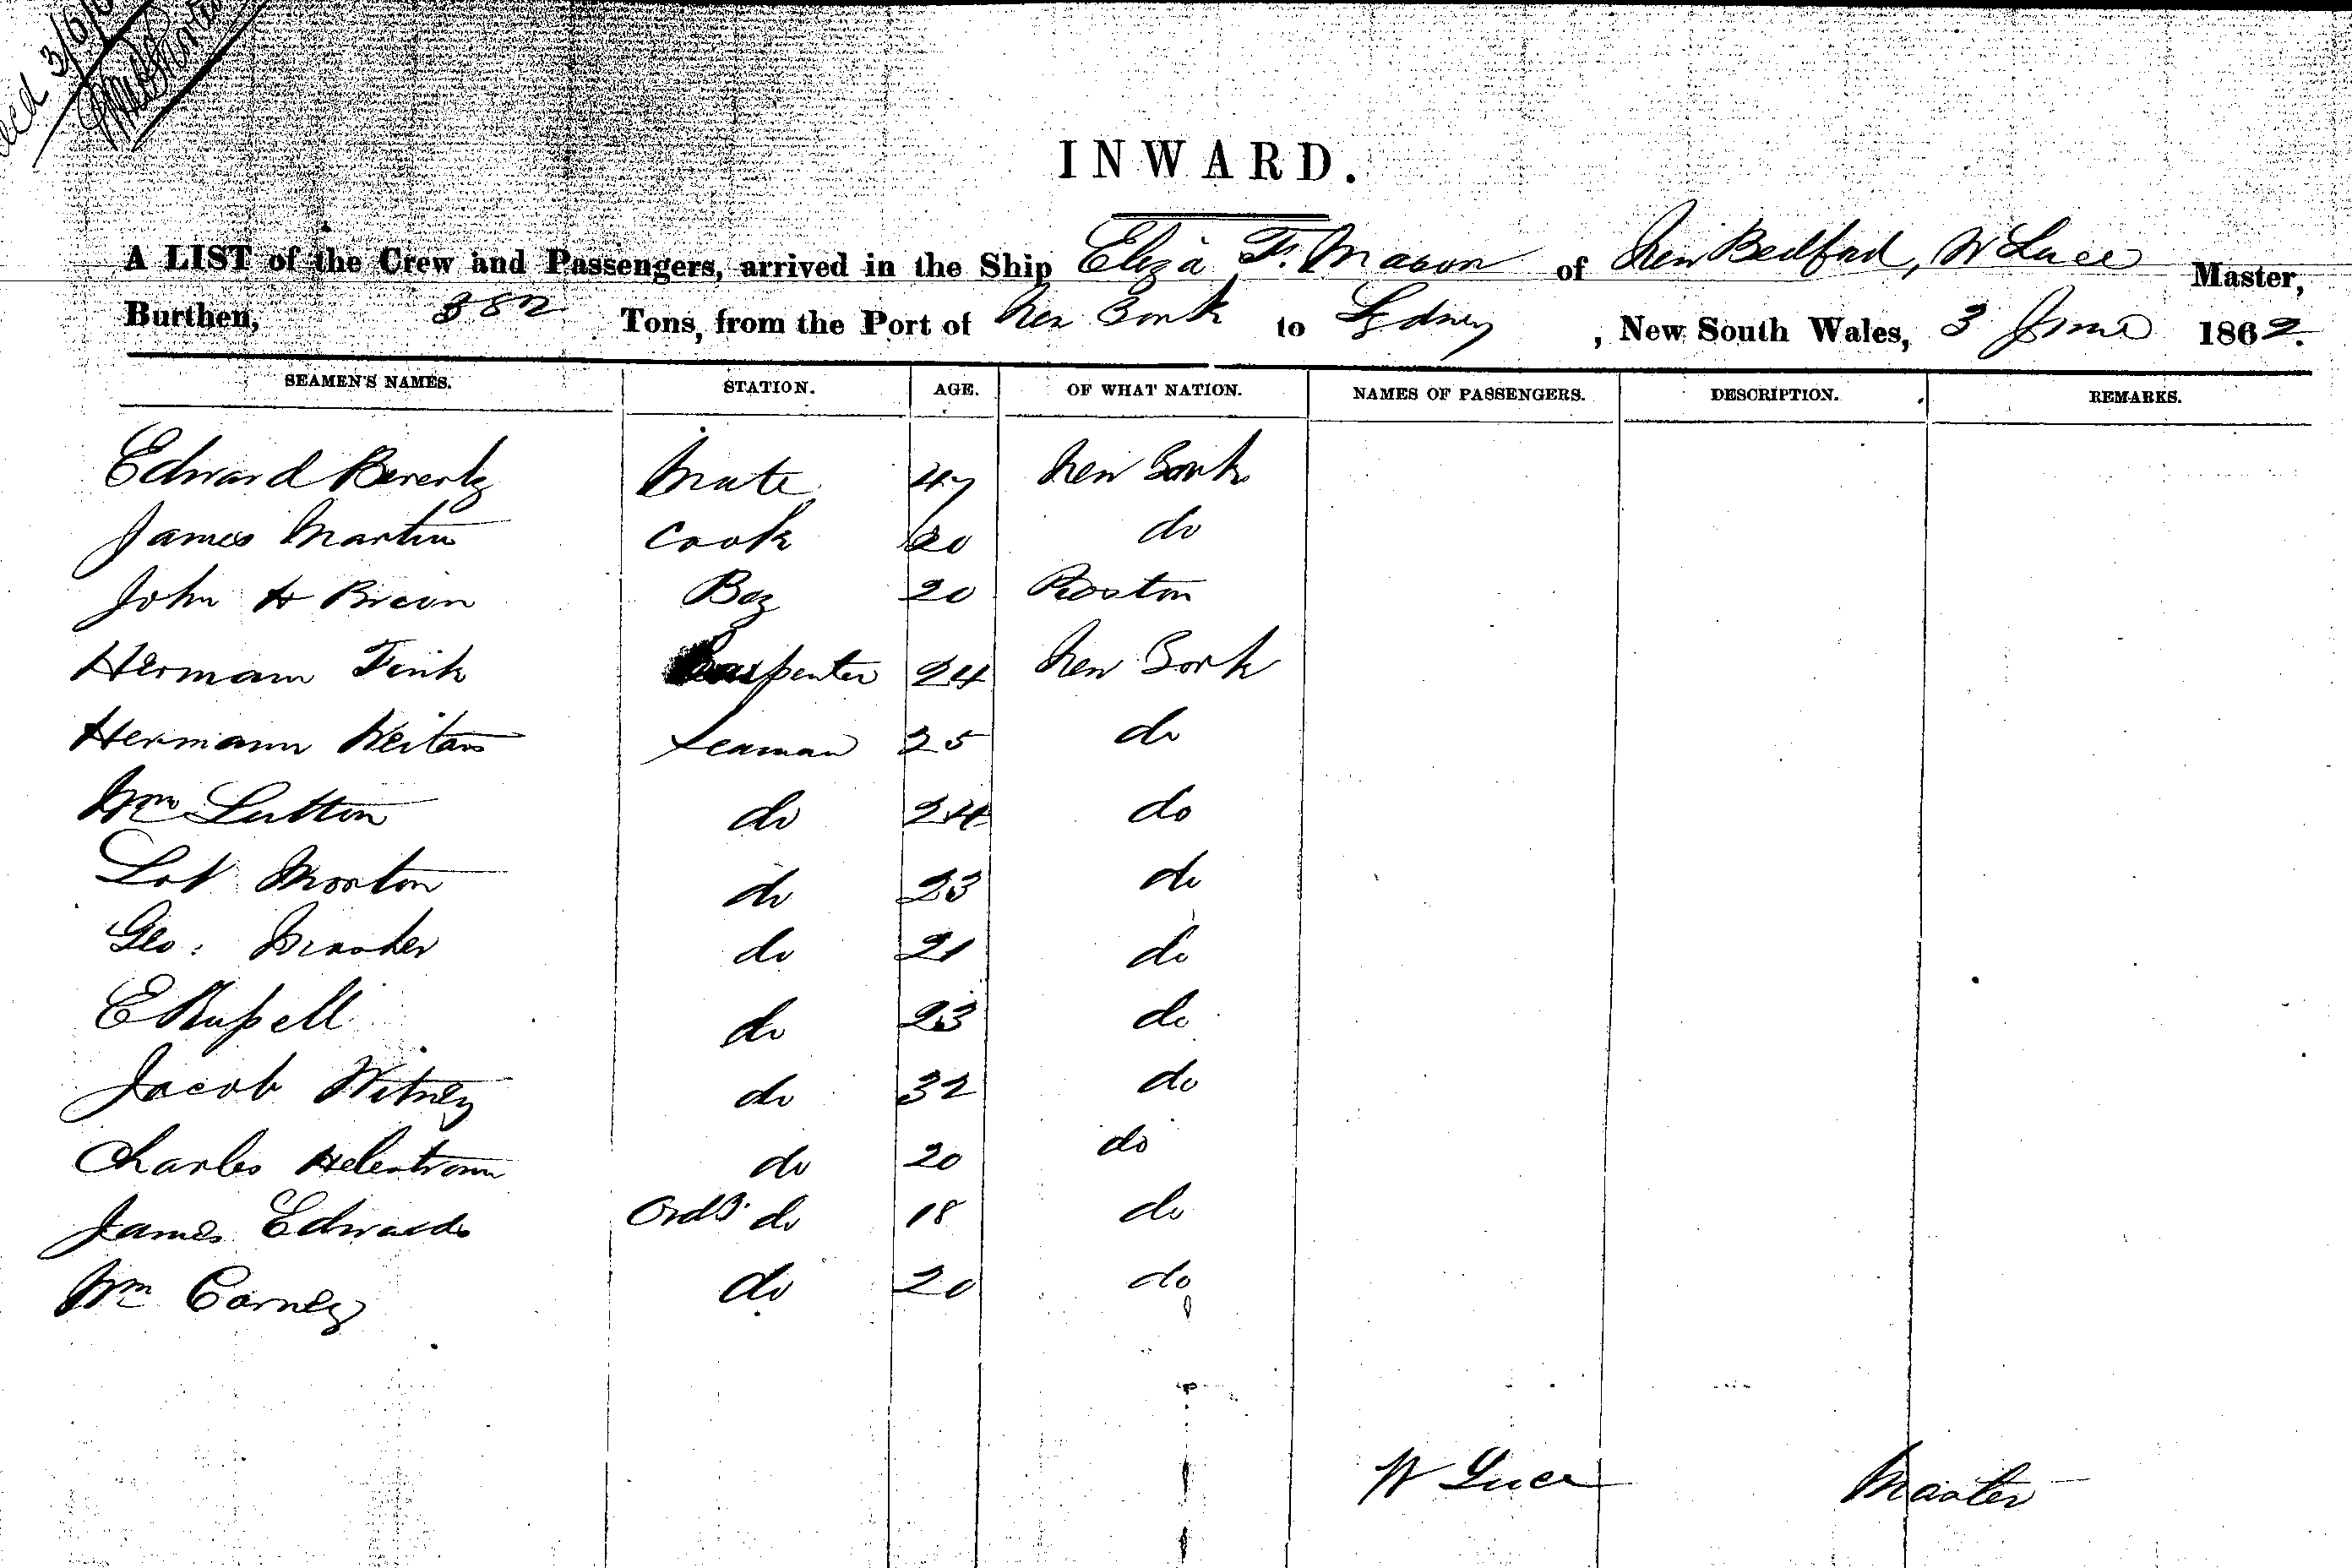 recd 3/6/6
INWARD.
A LIST of the Crew and Passengers, arrived in the Ship Eliza F. Mason of New Bedford, W Luce Master,
Burthen, 382 Tons, from the Port of New York to Sydney, New South Wales, 3 June 1862.
SEAMEN'S NAMES. STATION. AGE. OF WHAT NATION. NAMES OF PASSENGERS. DESCRIPTION. REMARKS.
Edward Beverly Mate 47 New York
James Martin Cook 20 do
John H Brown Boy 20 Boston
Hermann Fink Carpenter 24 New York
Hermann Seaman 25 do
Wm Sutton do 24 do
Lot Morton do 23 do
Geo: Mosher do 21 do
E Russell do 23 do
Jacob Witney do 32 do
Charles Helestrom do 20 do
James Edwards Ordy do 18 do
Wm Carney do 20 do
W Luce Master